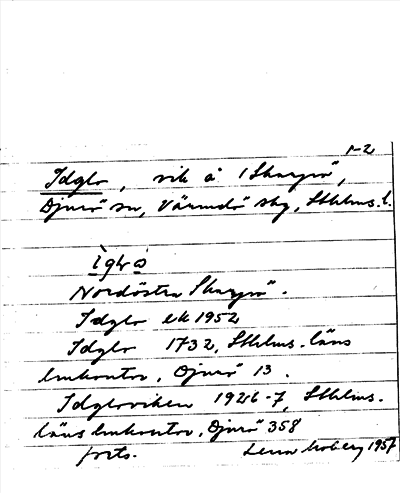 1-2
Idglo, vik å 1 Skarpö,
Djurö sn, Värmdö skg, Sthlms. l.
ìgl⁠ω
Nordöstra Skarpö.
Idglo ek 1952
Idglo 1732, Sthlms. läns
lmkontor, Djurö 13.
Idgloviken 1926-7, Sthlms.
läns lmkontor, Djurö 358
forts. Lena Moberg 1957